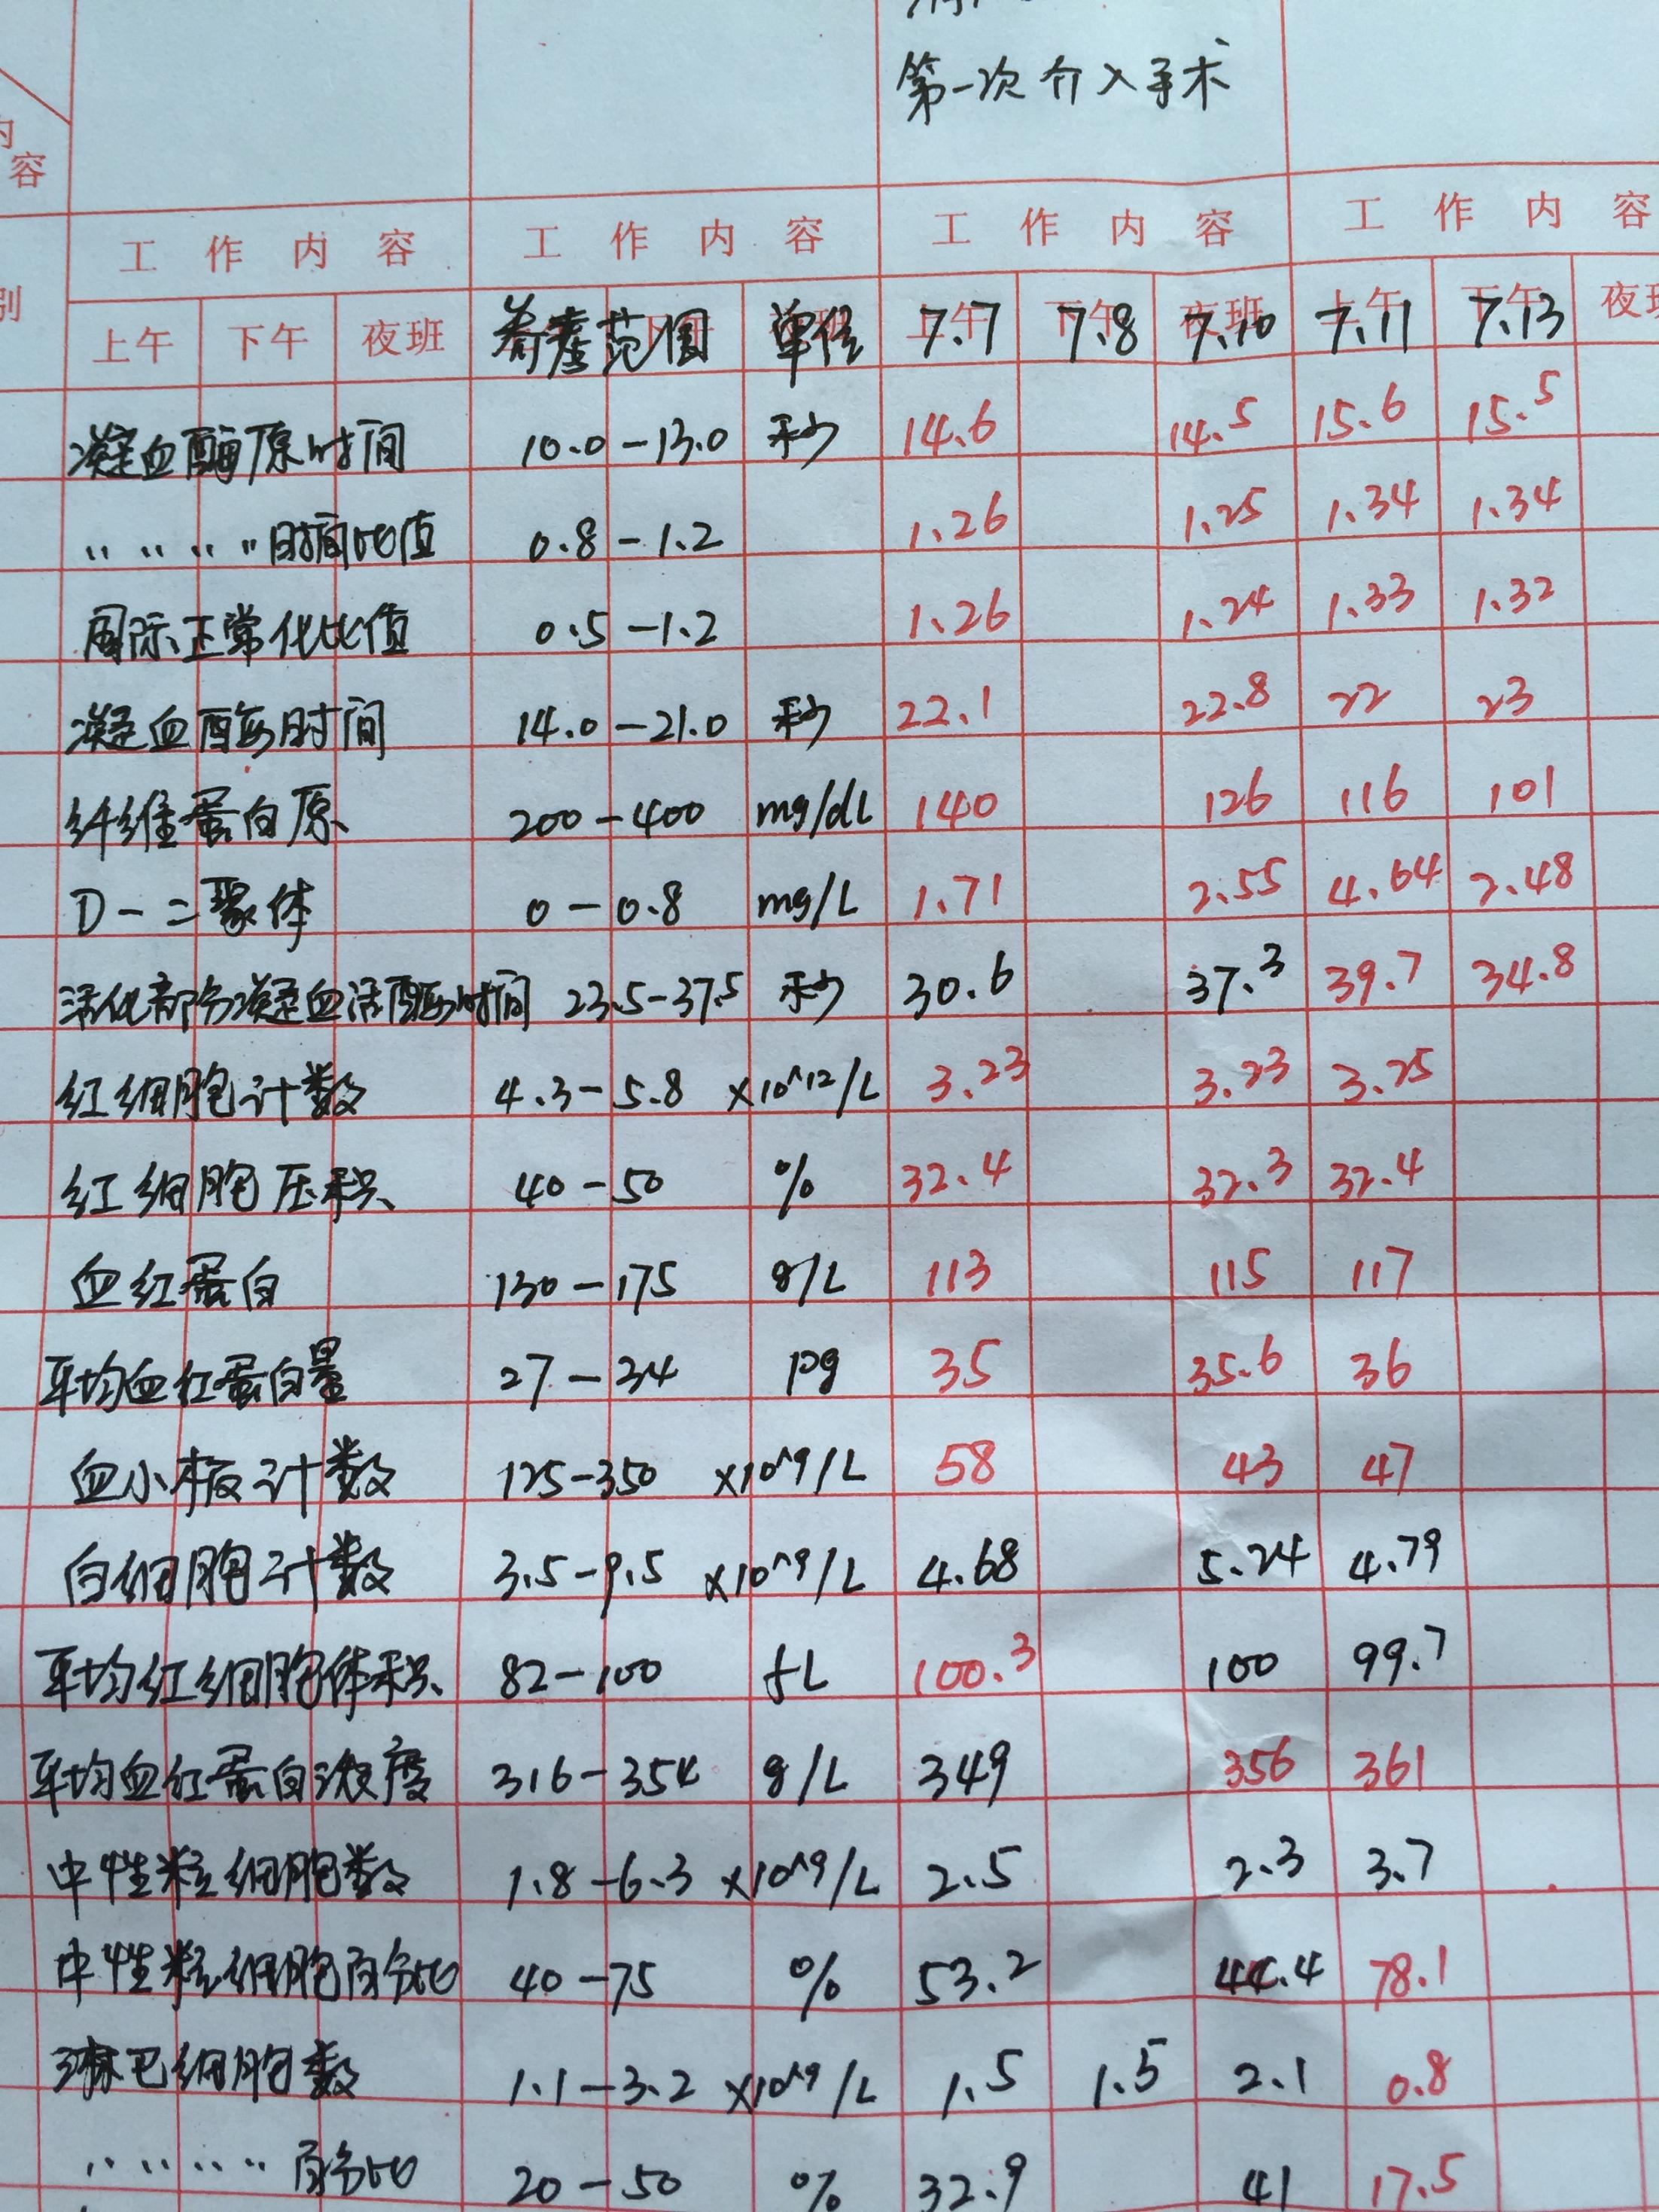 第一次介入手术
内容
工作内容 工作内容 工作内容 工作内容
别 上午 下午 夜班 参考范围 单位 7.7 7.8 7.10 7.11 7.13 夜班
凝血酶原时间 10.0-13.0 秒 14.6 14.5 15.6 15.5
〃 〃 〃 〃时间比值 0.8-1.2 1.26 1.25 1.34 1.34
国际正常化比值 0.5-1.2 1.26 1.24 1.33 1.32
凝血酶时间 14.0-21.0 秒 22.1 22.8 22 23
纤维蛋白原 200-400 mg/dL 140 126 116 101
D-二聚体 0-0.8 mg/L 1.71 2.55 4.64 2.48
活化部分凝血活酶时间 23.5-37.5 秒 30.6 37.3 39.7 34.8
红细胞计数 4.3-5.8 ×10^12/L 3.23 3.23 3.25
红细胞压积 40-50 % 32.4 32.3 32.4
血红蛋白 130-175 g/L 113 115 117
平均血红蛋白量 27-34 pg 35 35.6 36
血小板计数 125-350 ×10^9/L 58 43 47
白细胞计数 3.5-9.5 ×10^9/L 4.68 5.24 4.79
平均红细胞体积 82-100 fL 100.3 100 99.7
平均血红蛋白浓度 316-354 g/L 349 356 361
中性粒细胞数 1.8-6.3 ×10^9/L 2.5 2.3 3.7
中性粒细胞百分比 40-75 % 53.2 44.4 78.1
淋巴细胞数 1.1-3.2 ×10^9/L 1.5 1.5 2.1 0.8
〃 〃 〃 〃 〃 百分比 20-50 % 32.9 41 17.5